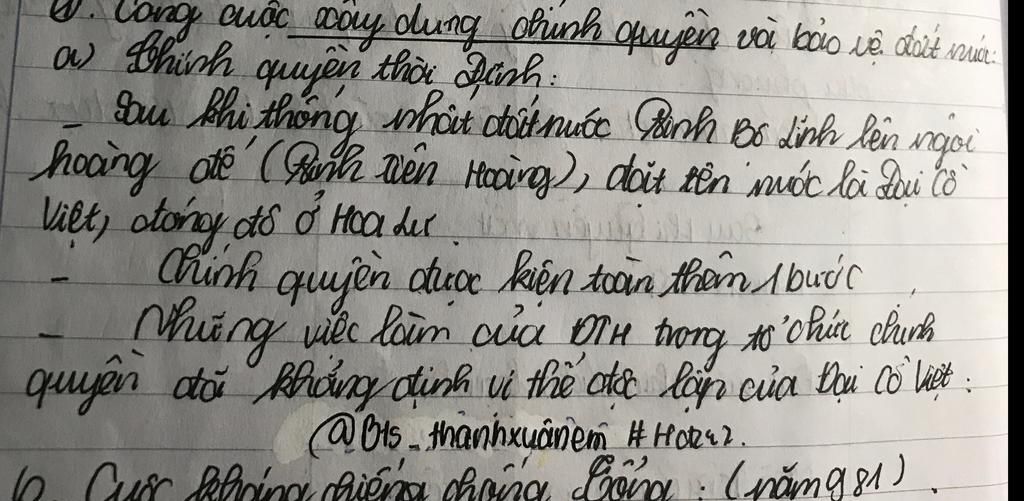 1. Công cuộc xây dựng chính quyền và bảo vệ đất nước:
a) Chính quyền thời Đinh:
- Sau khi thống nhất đất nước Đinh Bộ Lĩnh lên ngôi
hoàng đế (Đinh Tiên Hoàng), đặt tên nước là Đại Cồ
Việt, đóng đô ở Hoa Lư.
- Chính quyền được kiện toàn thêm 1 bước
- Những việc làm của ĐTH trong tổ chức chính
quyền đã khẳng định vị thế độc lập của Đại Cồ Việt.
@Bts_thanhxuânem #
b. Cuộc kháng chiến chống Tống: (năm 981)